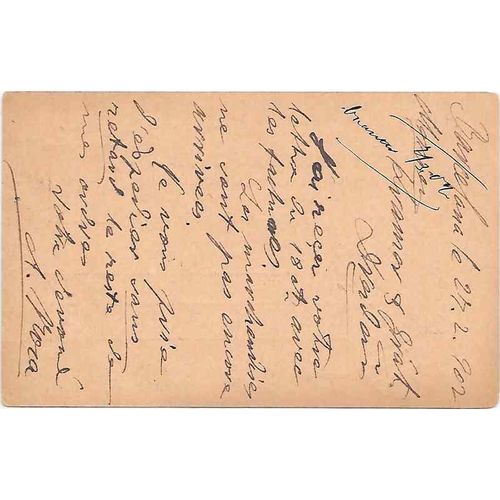 Barcelona le 27. 2. 902
J'ai reçu votre
lettre du 18 ct. avec
les factures,
Les marchandises
ne sont pas encore
arrivées.
Je vous prie
d'expédier sans
retard le reste de
mes ordres
Votre dévoué
A. Mora